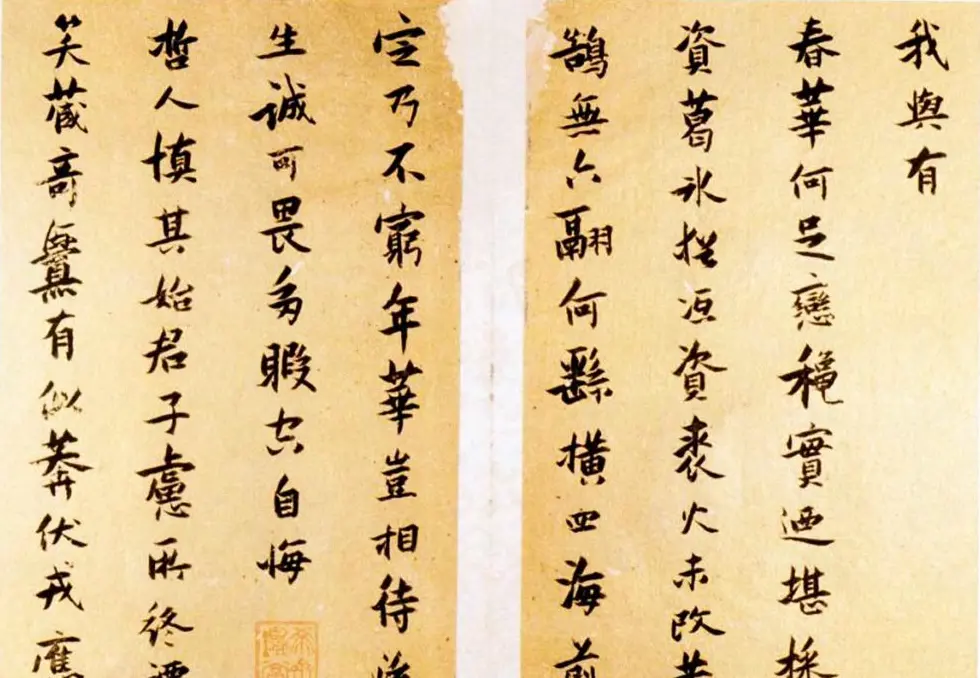 我與有
春華何足戀穐實迺堪採
資葛冰資裘火未改黃
鵠無六翮何繇橫四海前
定乃不窮年華豈相待後
生誠可畏多暇空自悔
哲人慎其始君子慮所終
笑蔵奇釁有似莽伏戎應